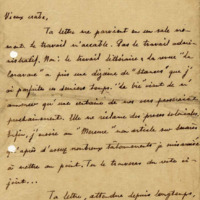 Vieux crabe,
Ta lettre me parvient en un sale mo-
ment. Le travail m'accable. Pas le travail admi-
nistratif. Non! le travail littéraire. La revue "La
Caravane" a pris une dizaine de "Stances" que j'
ai parfaites ces derniers temps. "La Vie" vient de m'
annoncer qu'une centaine de mes vers passeraient
prochainement. Elle me réclame des proses coloniales.
Enfin, j'envoie au "Mercure" mon article sur
qu'après d'assez nombreux tâtonnements je suis arrivé
à mettre au point. Tu le trouveras du reste ci-
joint...
Ta lettre, attendue depuis longtemps,